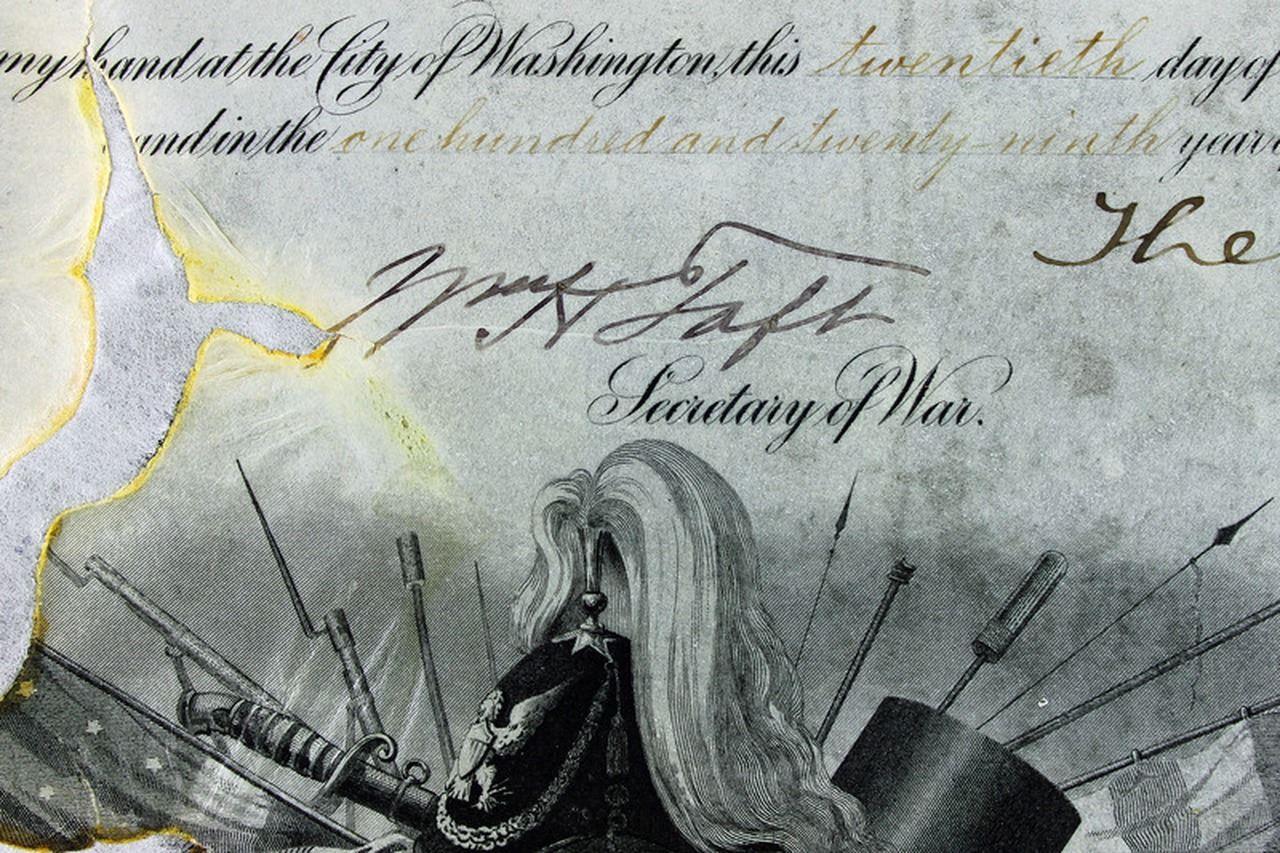 my hand at the City of Washington, this twentieth day of
and in the one hundred and twenty ninth year
The
Wm H Taft
Secretary of War.